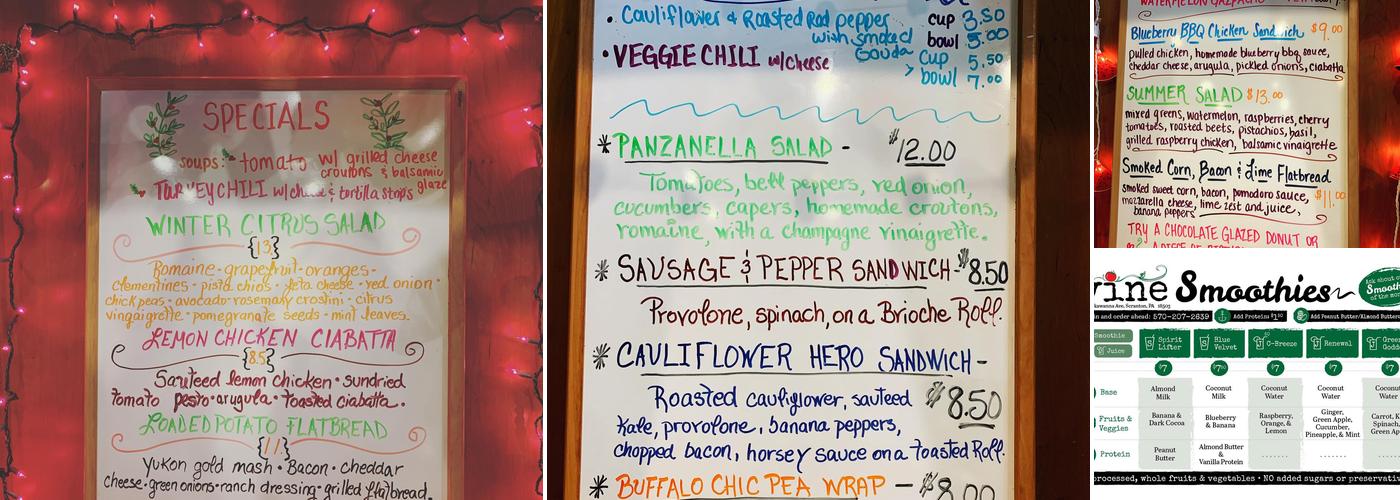 SPECIALS
soups: tomato w/ grilled cheese
croutons & balsamic
glaze
TURKEY CHILI w/cheese & tortilla strips
WINTER CITRUS SALAD
{13}
Romaine · grapefruit · oranges ·
clementines · pistachios · feta cheese · red onion ·
chick peas · avocado · rosemary crostini · citrus
vinaigrette · pomegranate seeds · mint leaves.
LEMON CHICKEN CIABATTA
{8.5}
Sauteed lemon chicken · sundried
tomato pesto · arugula · toasted ciabatta.
LOADED POTATO FLATBREAD
{11}
Yukon gold mash · Bacon · cheddar
cheese · green onions · ranch dressing · grilled flatbread.
• Cauliflower & Roasted Red pepper cup 3.50
with smoked bowl 5.00
Gouda
• VEGGIE CHILI w/cheese > cup 5.50
bowl 7.00
* PANZANELLA SALAD - $12.00
Tomatoes, bell peppers, red onion,
cucumbers, capers, homemade croutons,
romaine, with a champagne vinaigrette.
* SAUSAGE & PEPPER SANDWICH - $8.50
Provolone, spinach, on a Brioche Roll.
* CAULIFLOWER HERO SANDWICH -
Roasted cauliflower, sauteed $8.50
kale, provolone, banana peppers,
chopped bacon, horsey sauce on a toasted Roll.
* BUFFALO CHIC PEA WRAP - $8.00
WATERMELON GAZPACHO
Blueberry BBQ Chicken Sandwich $9.00
pulled chicken, homemade blueberry bbq sauce,
cheddar cheese, arugula, pickled onions, ciabatta
SUMMER SALAD $13.00
mixed greens, watermelon, raspberries, cherry
tomatoes, roasted beets, pistachios, basil,
grilled raspberry chicken, balsamic vinaigrette
Smoked Corn, Bacon & Lime Flatbread
smoked sweet corn, bacon, pomodoro sauce, $11.00
mozzarella cheese, lime zest and juice,
banana peppers
TRY A CHOCOLATE GLAZED DONUT OR
rine Smoothies
kawanna Ave, Scranton, PA 18503
Ask about o
Smooth
of the mo
n and order ahead: 570-207-2639 Add Protein: $1.50 Add Peanut Butter/Almond Butter
Smoothie
Juice
Spirit Lifter
Blue Velvet
C-Breeze
Renewal
Green Godd
$7 $7.50 $7 $7 $7
Base Almond Milk Coconut Milk Coconut Water Coconut Water Coconut Water
Fruits & Veggies Banana & Dark Cocoa Blueberry & Banana Raspberry, Orange, & Lemon Ginger, Green Apple, Cucumber, Pineapple, & Mint Carrot, K Spinach, Green Ap
Protein Peanut Butter Almond Butter & Vanilla Protein
processed, whole fruits & vegetables • NO added sugars or preservat